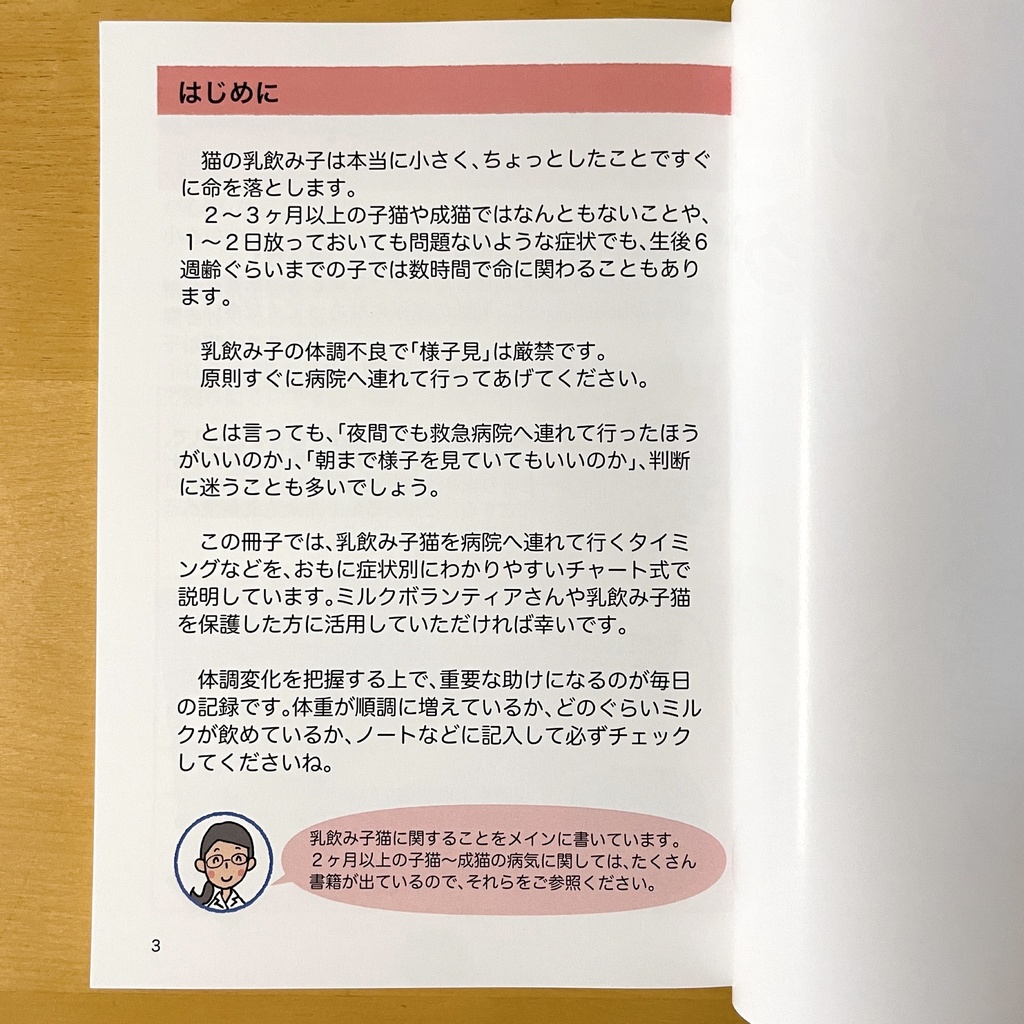 はじめに
猫の乳飲み子は本当に小さく、ちょっとしたことですぐ
に命を落とします。
２～３ヶ月以上の子猫や成猫ではなんともないことや、
１～２日放っておいても問題ないような症状でも、生後６
週齢ぐらいまでの子では数時間で命に関わることもあり
ます。
乳飲み子の体調不良で「様子見」は厳禁です。
原則すぐに病院へ連れて行ってあげてください。
とは言っても、「夜間でも救急病院へ連れて行ったほう
がいいのか」、「朝まで様子を見ていてもいいのか」、判断
に迷うことも多いでしょう。
この冊子では、乳飲み子猫を病院へ連れて行くタイミ
ングなどを、おもに症状別にわかりやすいチャート式で
説明しています。ミルクボランティアさんや乳飲み子猫
を保護した方に活用していただければ幸いです。
体調変化を把握する上で、重要な助けになるのが毎日
の記録です。体重が順調に増えているか、どのぐらいミル
クが飲めているか、ノートなどに記入して必ずチェック
してくださいね。
乳飲み子猫に関することをメインに書いています。
２ヶ月以上の子猫～成猫の病気に関しては、たくさん
書籍が出ているので、それらをご参照ください。
3